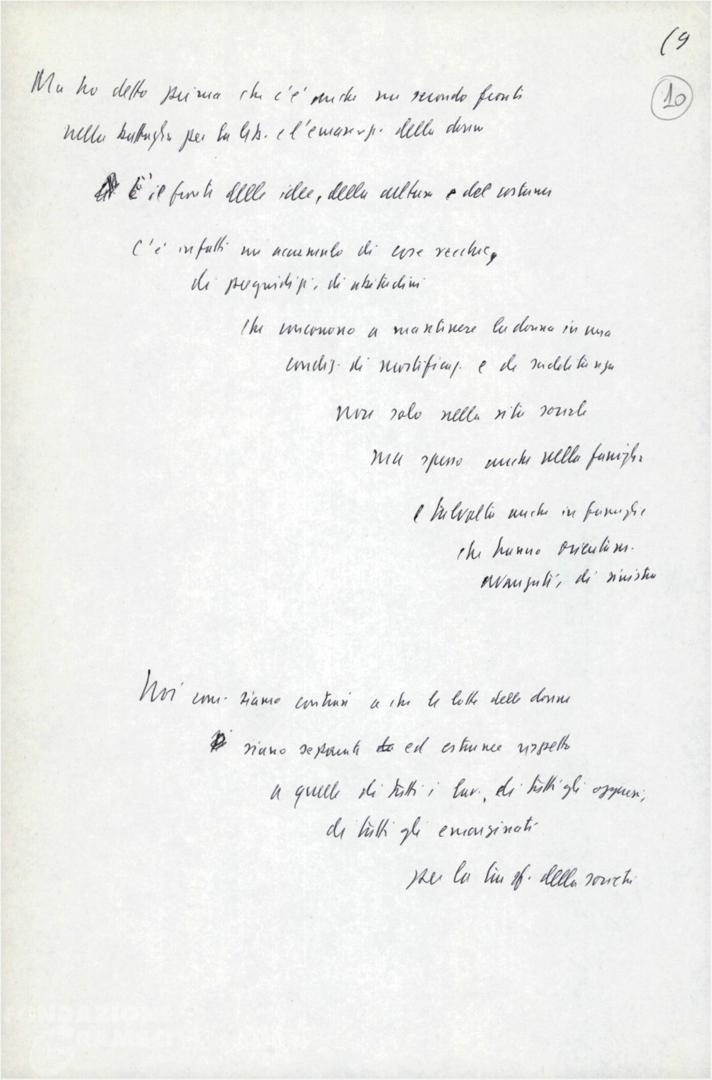 (9
10
Ma ho detto prima che c'è anche un secondo fronte
nella battaglia per la lib. e l'emancip. della donna
È il fronte delle idee, della cultura e del costume
C'è infatti un accumulo di cose vecchie,
di pregiudizi, di abitudini
che concorrono a mantenere la donna in una
condiz. di mortificaz. e di sudditanza
non solo nella vita sociale
ma spesso anche nella famiglia
e talvolta anche in famiglie
che hanno orientam.
avanzati, di sinistra
Noi com. siamo contrari a che le lotte delle donne
siano separate ed estranee rispetto
a quelle di tutti i lav., di tutti gli oppressi,
di tutti gli emarginati
per la della società